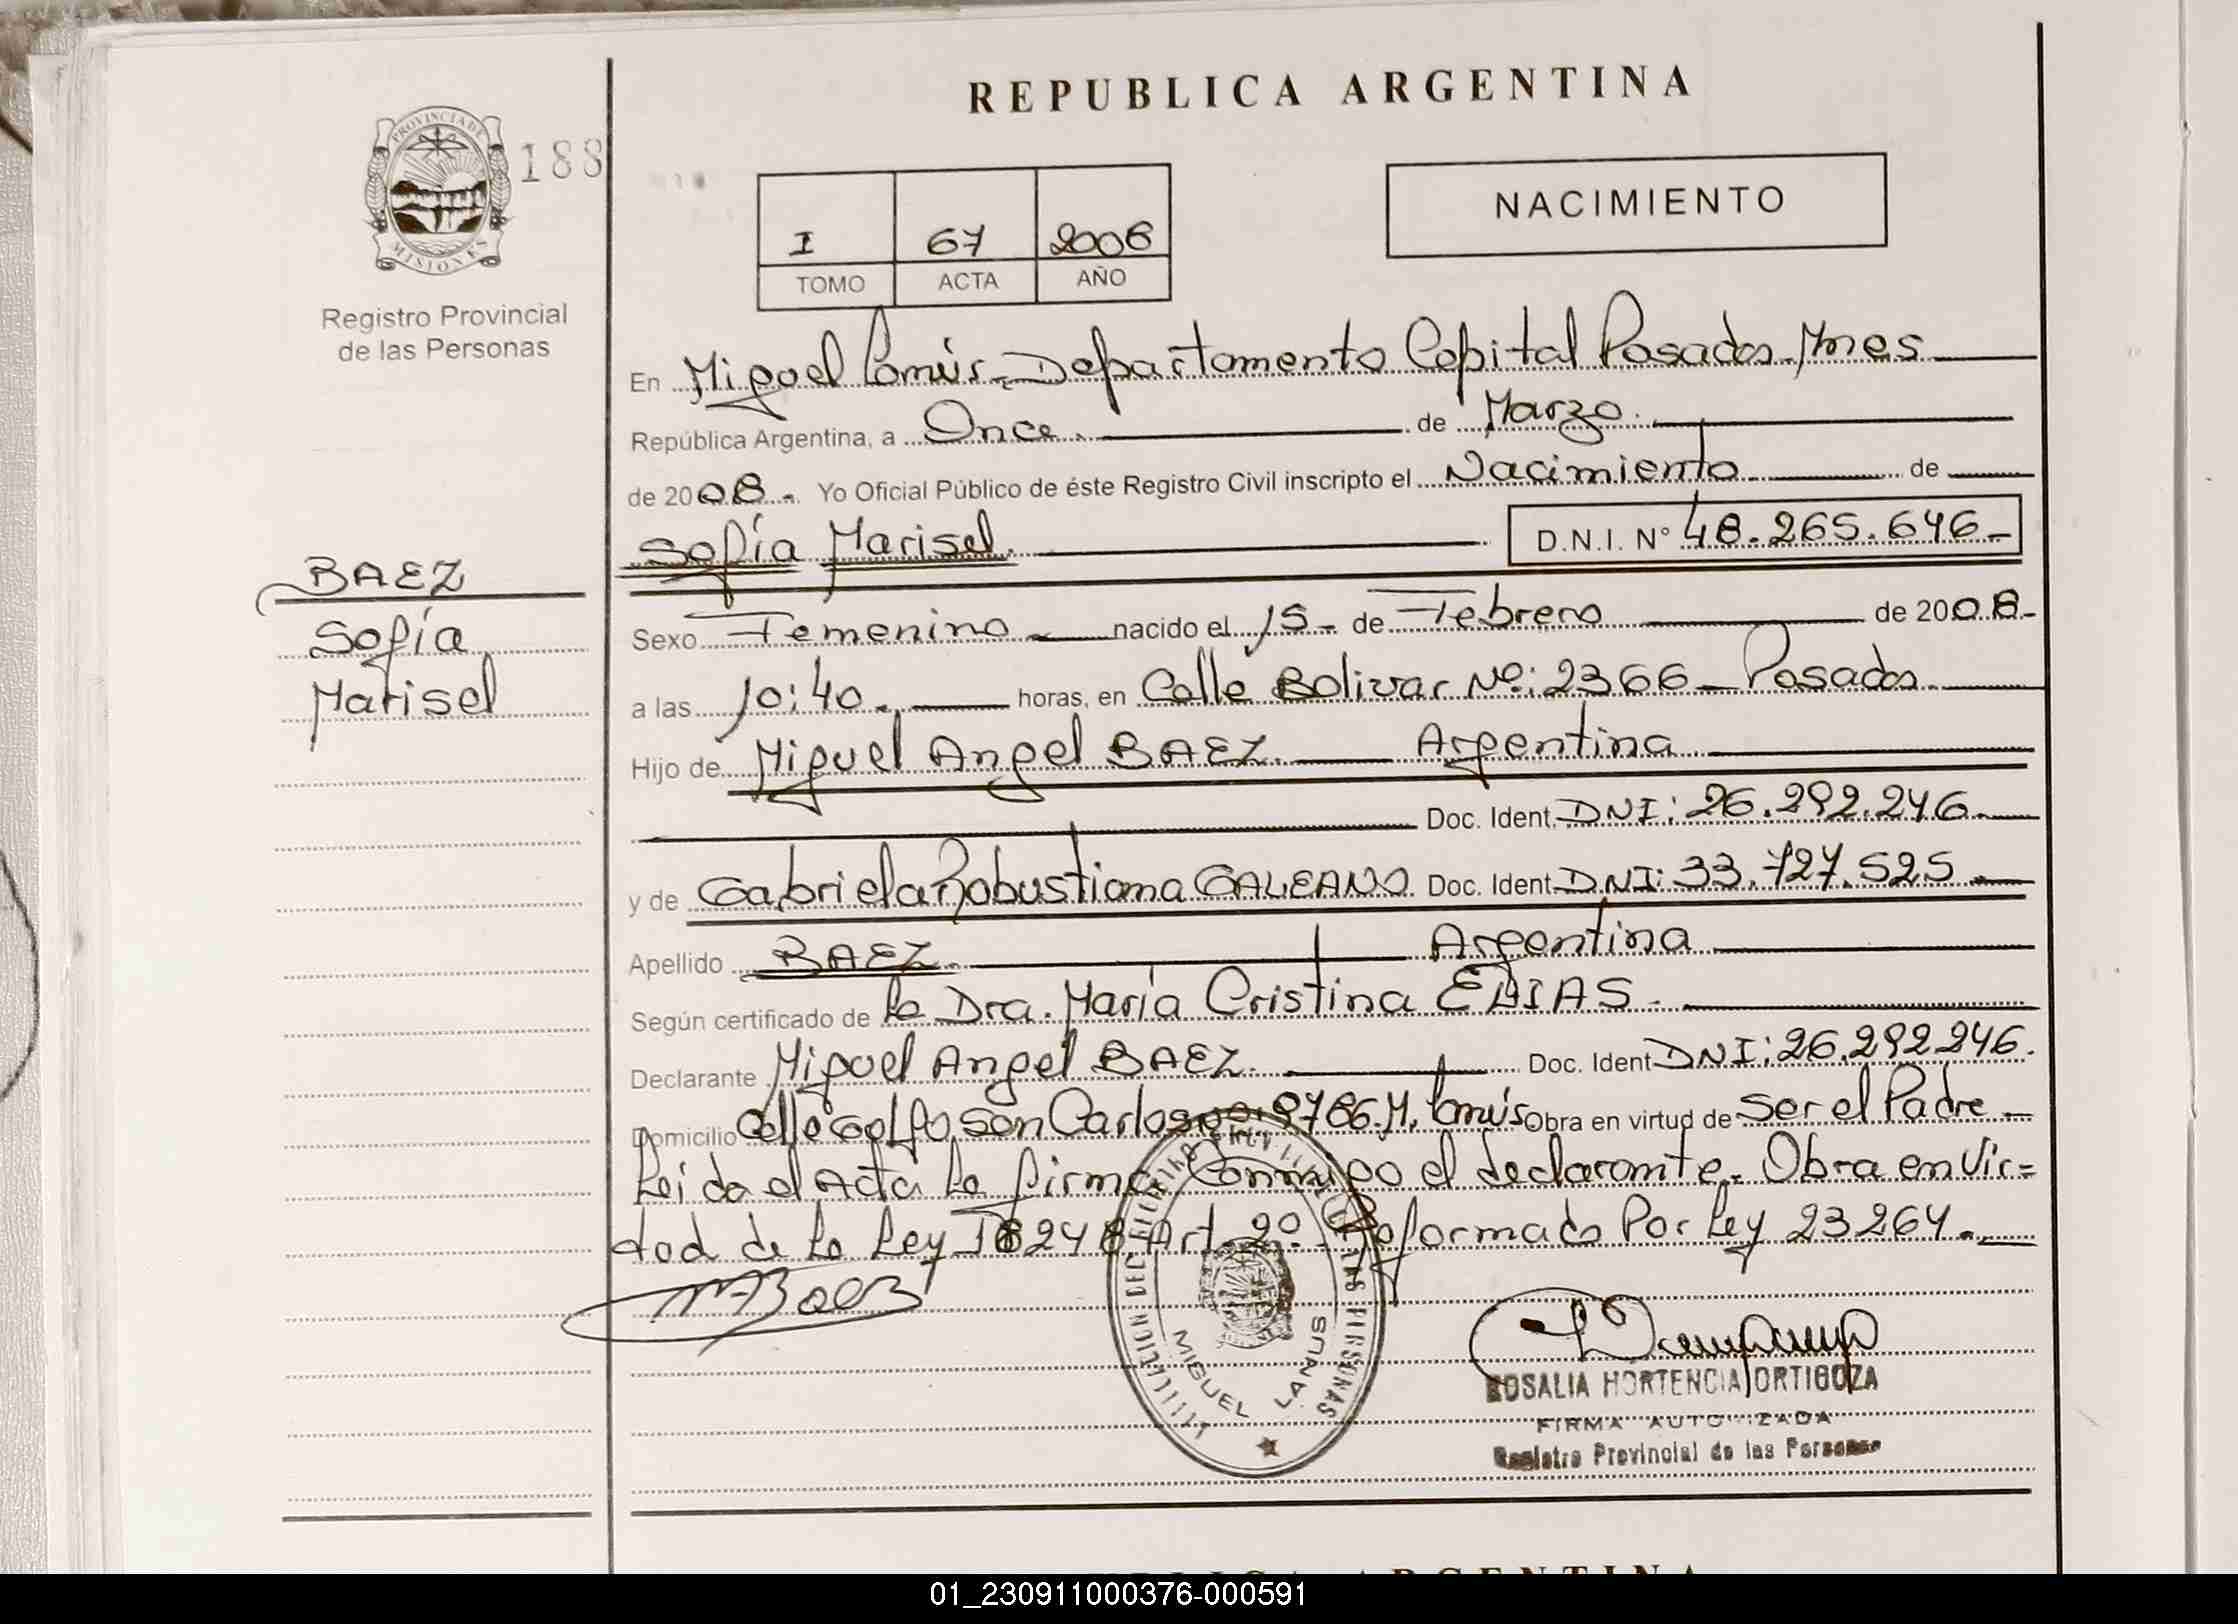 REPUBLICA ARGENTINA
PROVINCIA DE
MISIONES
188
NACIMIENTO
I 67 2008
TOMO ACTA AÑO
Registro Provincial
de las Personas
En Miguel Lanús - Departamento Capital Posadas - Mnes
República Argentina, a Once. de Marzo.
de 2008.- Yo Oficial Público de éste Registro Civil inscripto el Nacimiento de
Sofía Marisel. D.N.I. N° 48.265.646-
BAEZ
Sofía
Marisel
Sexo Femenino nacido el 15- de Febrero de 2008-
a las 10:40.- horas, en Calle Bolivar Nº: 2366 - Posadas.
Hijo de Miguel Angel BAEZ. Argentina
Doc. Ident. DNI: 26.292.246.
y de Gabriela Robustiana GALEANO. Doc. Ident. DNI: 33.727.525.-
Apellido BAEZ. Argentina
Según certificado de la Dra. María Cristina ELIAS.-
Declarante Miguel Angel BAEZ. Doc. Ident DNI: 26.292.246.
Domicilio Calle Golfo San Carlos 9786. M. Lanús Obra en virtud de Ser el Padre -
Leida el Acta la firma Conmigo el declarante.- Obra en Vir=
tud de la Ley 18248 Art. 2º. Reformada Por Ley 23264.-
MBaez
MIGUEL LANUS
ROSALIA HORTENCIA ORTIGOZA
FIRMA AUTORIZADA
Registro Provincial de las Personas
01_230911000376-000591